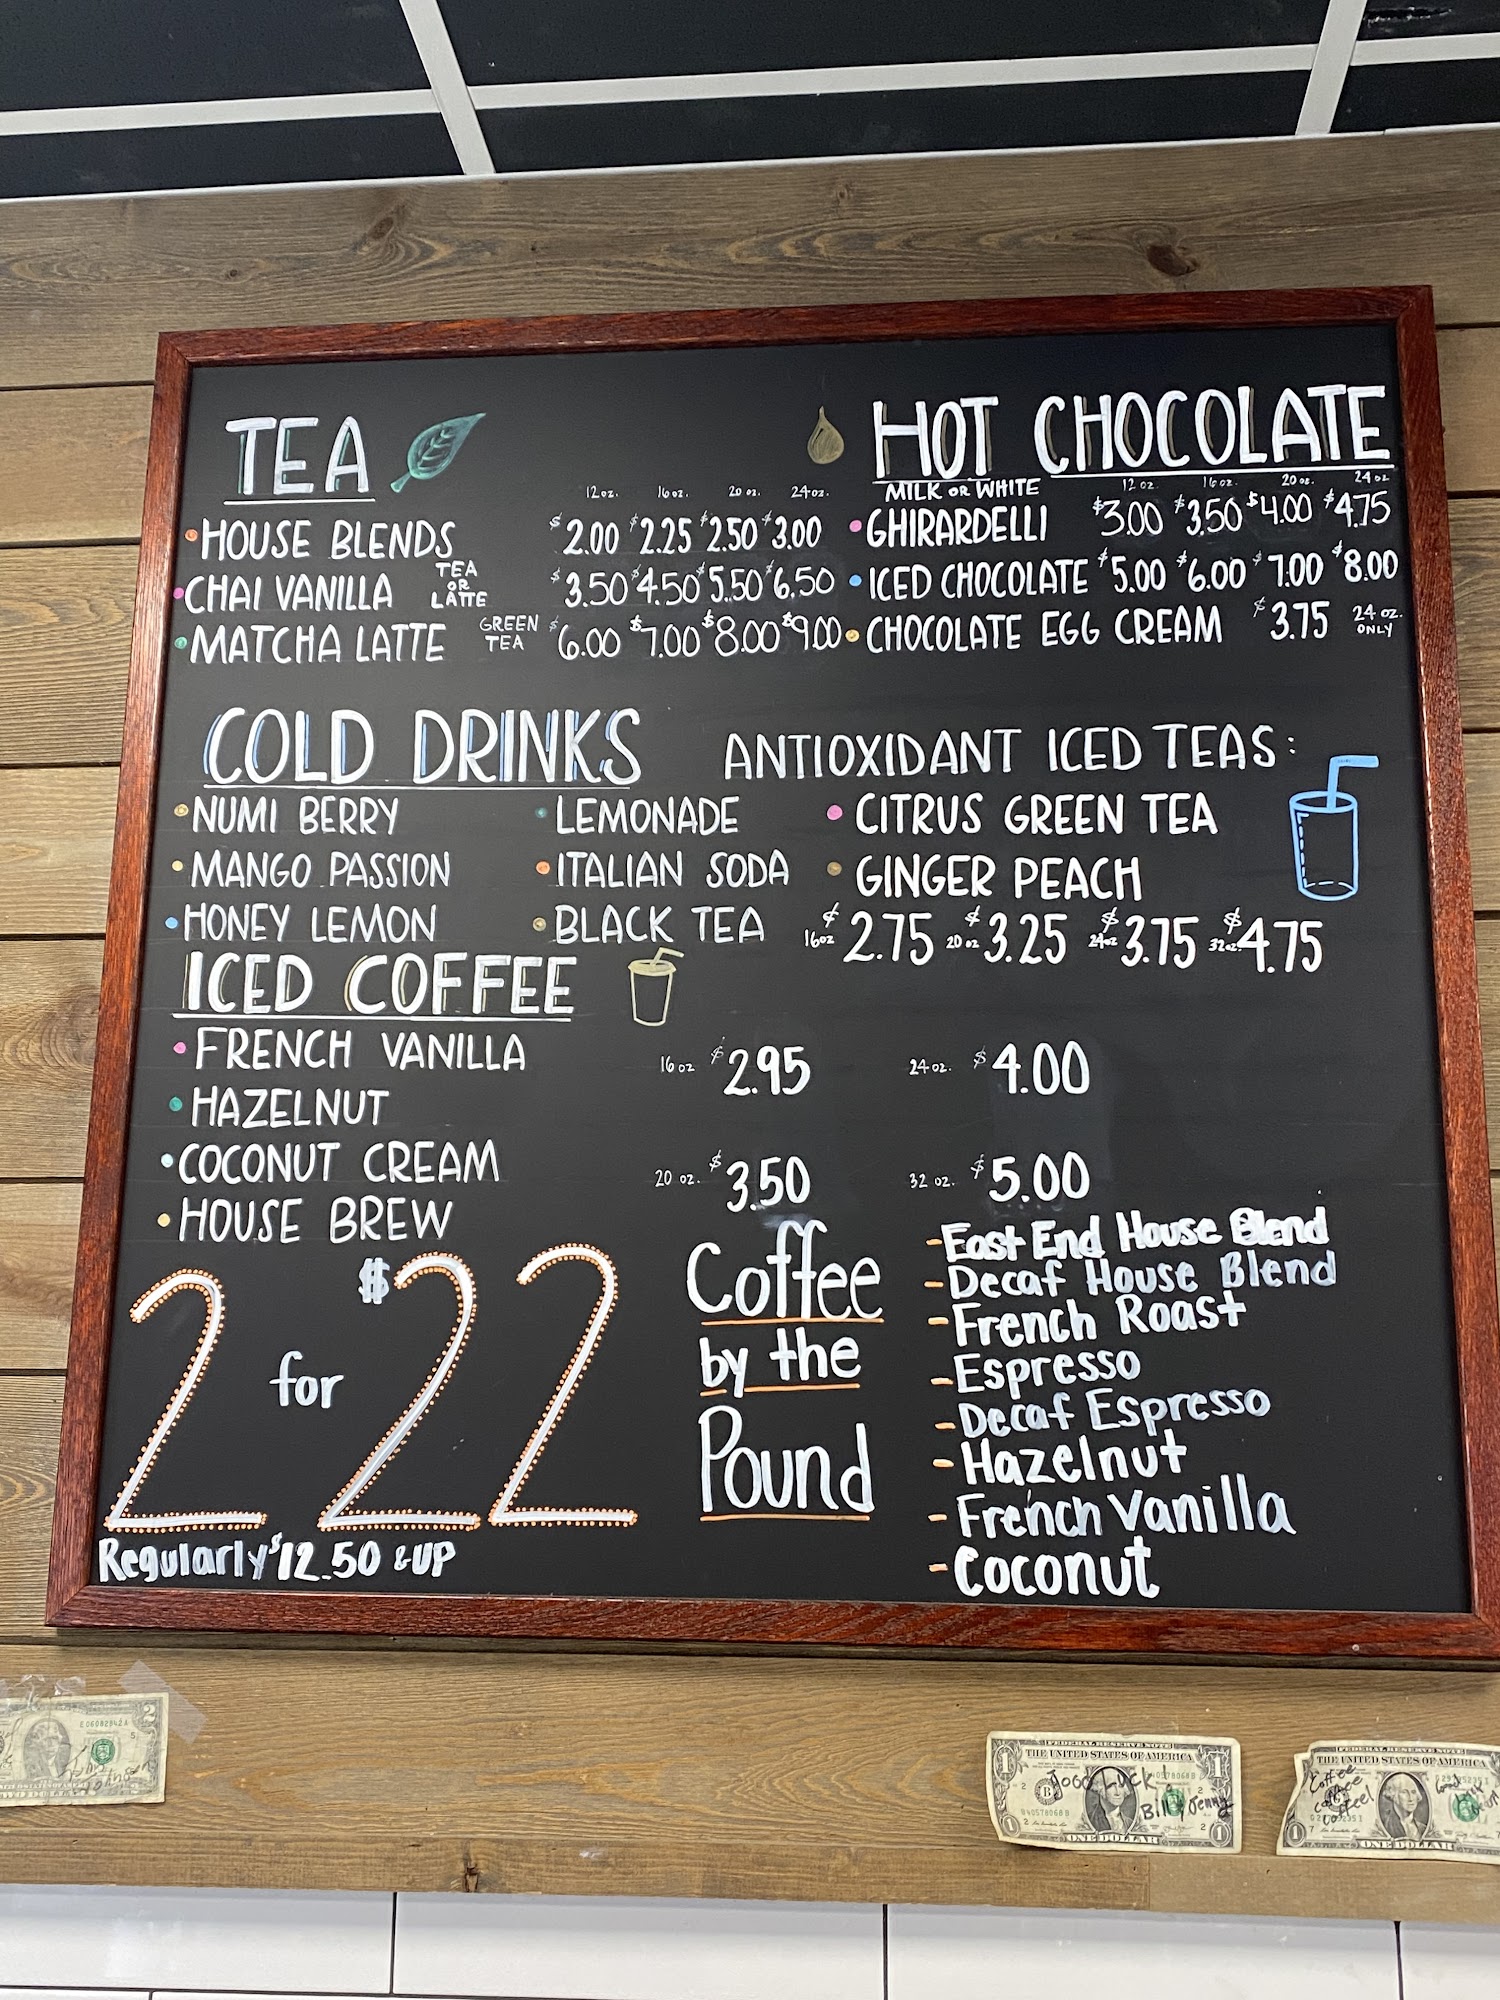 TEA
12 oz. 16 oz. 20 oz. 24 oz.
HOUSE BLENDS $2.00 $2.25 $2.50 $3.00
CHAI VANILLA TEA OR LATTE $3.50 $4.50 $5.50 $6.50
MATCHA LATTE GREEN TEA $6.00 $7.00 $8.00 $9.00
HOT CHOCOLATE
MILK OR WHITE 12 oz. 16 oz. 20 oz. 24 oz
GHIRARDELLI $3.00 $3.50 $4.00 $4.75
ICED CHOCOLATE $5.00 $6.00 $7.00 $8.00
CHOCOLATE EGG CREAM $3.75 24 OZ. ONLY
COLD DRINKS
NUMI BERRY
MANGO PASSION
HONEY LEMON
LEMONADE
ITALIAN SODA
BLACK TEA
ANTIOXIDANT ICED TEAS:
CITRUS GREEN TEA
GINGER PEACH
16oz $2.75 20 oz $3.25 24oz $3.75 32oz. $4.75
ICED COFFEE
FRENCH VANILLA
HAZELNUT
COCONUT CREAM
HOUSE BREW
16 oz $2.95 24 oz. $4.00
20 oz. $3.50 32 oz. $5.00
2 for $22
Regularly $12.50 & UP
Coffee
by the
Pound
- East End House Blend
- Decaf House Blend
- French Roast
- Espresso
- Decaf Espresso
- Hazelnut
- French Vanilla
- Coconut
E06082842A
FEDERAL RESERVE NOTE
THE UNITED STATES OF AMERICA
Good Luck!
Bill & Jenny
B40578068B
ONE DOLLAR
FEDERAL RESERVE NOTE
THE UNITED STATES OF AMERICA
Coffee
coffee
coffee!
ONE DOLLAR